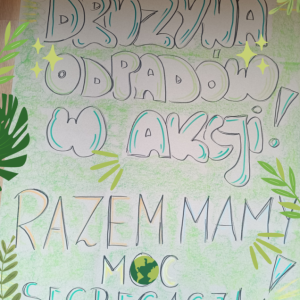 DRUŻYNA
ODPADÓW
W AKCJI!
RAZEM MAMY
MOC
SEGREGACJI!